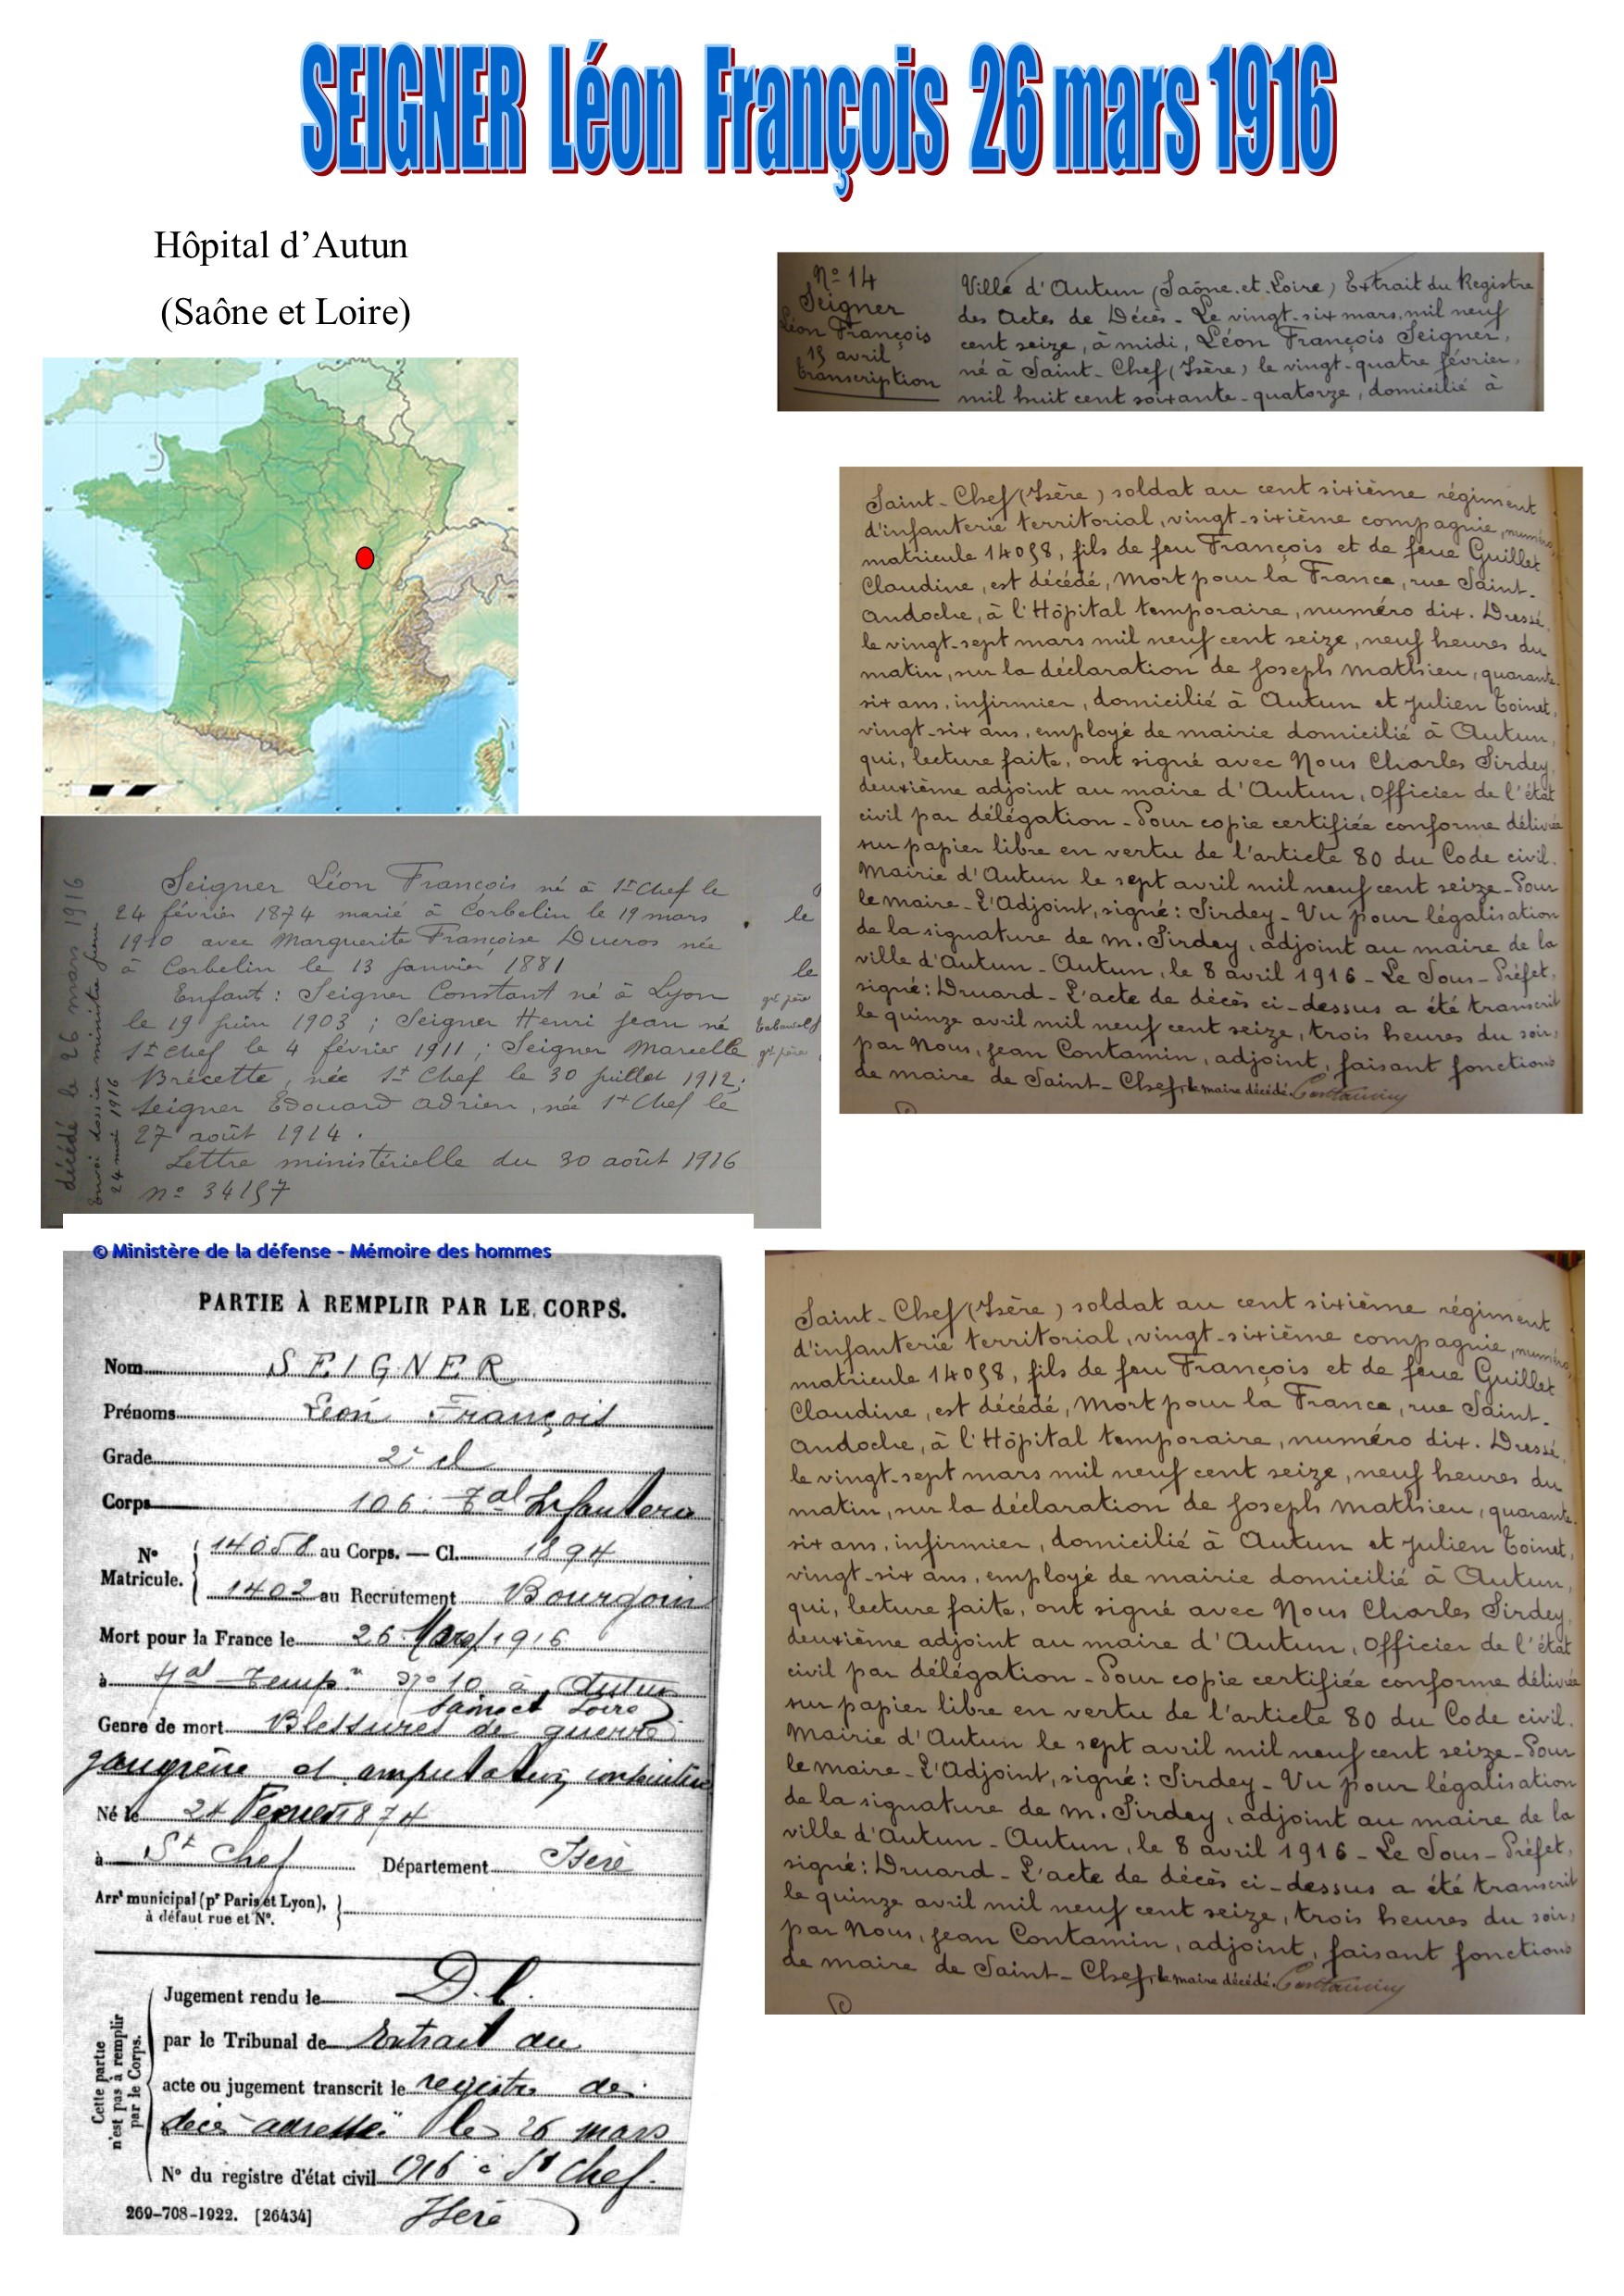 SEIGNER Léon François 26 mars 1916
Hôpital d'Autun
(Saône et Loire)
N° 14
Seigner
Léon François
15 avril
transcription
Ville d'Autun (Saône.et.Loire) Extrait du Registre
des Actes de Décès - Le vingt-six mars, mil neuf
cent seize, à midi, Léon François Seigner,
né à Saint-Chef (Isère) le vingt-quatre février,
mil huit cent soixante-quatorze, domicilié à
Saint-Chef (Isère) soldat au cent sixième régiment
d'infanterie territorial, vingt-sixième compagnie, numéro
matricule 14058, fils de feu François et de feue Guillet
Claudine, est décédé, Mort pour la France, rue Saint-
Andoche, à l'Hôpital temporaire, numéro dix. Dressé
le vingt-sept mars mil neuf cent seize, neuf heures du
matin, sur la déclaration de Joseph Mathieu, quarante-
six ans, infirmier, domicilié à Autun et Julien Toinet,
vingt-six ans, employé de mairie domicilié à Autun,
qui, lecture faite, ont signé avec Nous Charles Sirdey,
deuxième adjoint au maire d'Autun, Officier de l'état
civil par délégation - Pour copie certifiée conforme délivrée
sur papier libre en vertu de l'article 80 du Code civil.
Mairie d'Autun le sept avril mil neuf cent seize - Pour
le maire - L'Adjoint, signé: Sirdey - Vu pour légalisation
de la signature de M. Sirdey, adjoint au maire de la
ville d'Autun - Autun, le 8 avril 1916 - Le Sous-Préfet,
signé: Druard - L'acte de décès ci-dessus a été transcrit
le quinze avril mil neuf cent seize, trois heures du soir,
par Nous, Jean Contamin, adjoint, faisant fonctions
de maire de Saint-Chef, le maire décédé. Contamin
décédé le 26 mars 1916
Envoi dossier ministre guerre
24 mai 1916
Seigner Léon François né à St Chef le
24 février 1874 marié à Corbelin le 19 mars
1910 avec Marguerite Françoise Ducros née
à Corbelin le 13 janvier 1881
Enfant : Seigner Constant né à Lyon
le 19 juin 1903 ; Seigner Henri Jean né
St Chef le 4 février 1911 ; Seigner Marcelle
Brécette, née St Chef le 30 juillet 1912;
Seigner Edouard Adrien, née St Chef le
27 août 1914.
Lettre ministérielle du 30 août 1916
n° 34157
le
le
gd père
gd père
© Ministère de la défense - Mémoire des hommes
PARTIE À REMPLIR PAR LE CORPS.
Nom SEIGNER
Prénoms Léon François
Grade 2e cl
Corps 106e Tal Infanterie
N° Matricule. 14058 au Corps. — Cl. 1894
1402 au Recrutement Bourgoin
Mort pour la France le 26 Mars 1916
à Hal Tempre N° 10 à Autun
Saône et Loire
Genre de mort Blessures de guerre
gangrène et amputation
Né le 24 Février 1874
à St Chef Département Isère
Arrt municipal (pr Paris et Lyon),
à défaut rue et N°.
Cette partie
n'est pas à remplir
par le Corps.
Jugement rendu le D.C.
par le Tribunal de Extrait du
acte ou jugement transcrit le registre de
décès adressé le 26 mars
N° du registre d'état civil 1916 à St Chef.
Isère
269-708-1922. [26434]
Saint-Chef (Isère) soldat au cent sixième régiment
d'infanterie territorial, vingt-sixième compagnie, numéro
matricule 14058, fils de feu François et de feue Guillet
Claudine, est décédé, Mort pour la France, rue Saint-
Andoche, à l'Hôpital temporaire, numéro dix. Dressé
le vingt-sept mars mil neuf cent seize, neuf heures du
matin, sur la déclaration de Joseph Mathieu, quarante-
six ans, infirmier, domicilié à Autun et Julien Toinet,
vingt-six ans, employé de mairie domicilié à Autun,
qui, lecture faite, ont signé avec Nous Charles Sirdey,
deuxième adjoint au maire d'Autun, Officier de l'état
civil par délégation - Pour copie certifiée conforme délivrée
sur papier libre en vertu de l'article 80 du Code civil.
Mairie d'Autun le sept avril mil neuf cent seize - Pour
le maire - L'Adjoint, signé: Sirdey - Vu pour légalisation
de la signature de M. Sirdey, adjoint au maire de la
ville d'Autun - Autun, le 8 avril 1916 - Le Sous-Préfet,
signé: Druard - L'acte de décès ci-dessus a été transcrit
le quinze avril mil neuf cent seize, trois heures du soir,
par Nous, Jean Contamin, adjoint, faisant fonctions
de maire de Saint-Chef, le maire décédé. Contamin